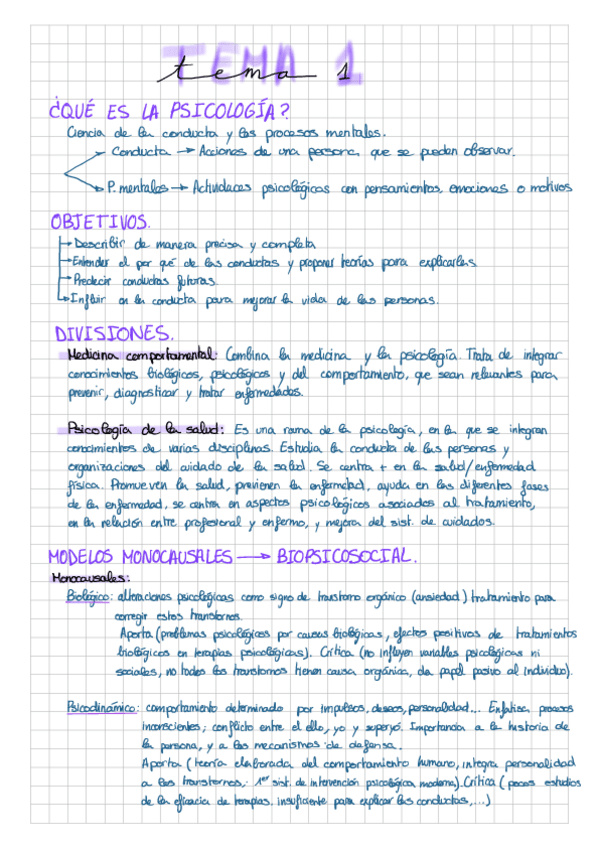 TEMA 1
tema 1
¿QUÉ ES LA PSICOLOGÍA?
Ciencia de la conducta y los procesos mentales.
Conducta → Acciones de una persona que se pueden observar.
P. mentales → Actividades psicológicas con pensamientos, emociones o motivos
OBJETIVOS.
→ Describir de manera precisa y completa
→ Entender el por qué de las conductas y proponer teorías para explicarlas
→ Predecir conductas futuras.
→ Influir en la conducta para mejorar la vida de las personas.
DIVISIONES.
Medicina comportamental: Combina la medicina y la psicología. Trata de integrar
conocimientos biológicos, psicológicos y del comportamiento, que sean relevantes para
prevenir, diagnosticar y tratar enfermedades.
Psicología de la salud: Es una rama de la psicología, en la que se integran
conocimientos de varias disciplinas. Estudia la conducta de las personas y
organizaciones del cuidado de la salud. Se centra + en la salud/enfermedad
física. Promueven la salud, previenen la enfermedad, ayuda en las diferentes fases
de la enfermedad, se centra en aspectos psicológicos asociados al tratamiento,
en la relación entre profesional y enfermo, y mejora del sist. de cuidados.
MODELOS MONOCAUSALES → BIOPSICOSOCIAL.
Monocausales:
Biológico: alteraciones psicológicas como signo de transtorno orgánico (ansiedad) tratamiento para
corregir estos transtornos.
Aporta (problemas psicológicos por causas biológicas, efectos positivos de tratamientos
biológicos en terapias psicológicas). Crítica (no influyen variables psicológicas ni
sociales, no todos los transtornos tienen causa orgánica, da papel pasivo al individuo).
Psicodinámico: comportamiento determinado por impulsos, deseos, personalidad... Enfatiza procesos
inconscientes; conflicto entre el ello, yo y superyó. Importancia a la historia de
la persona, y a los mecanismos de defensa.
Aporta (teoría elaborada del comportamiento humano, integra personalidad
a los transtornos, 1er sist. de intervención psicológica moderna). Crítica (pocos estudios
de la eficacia de terapias. insuficiente para explicar las conductas,...)